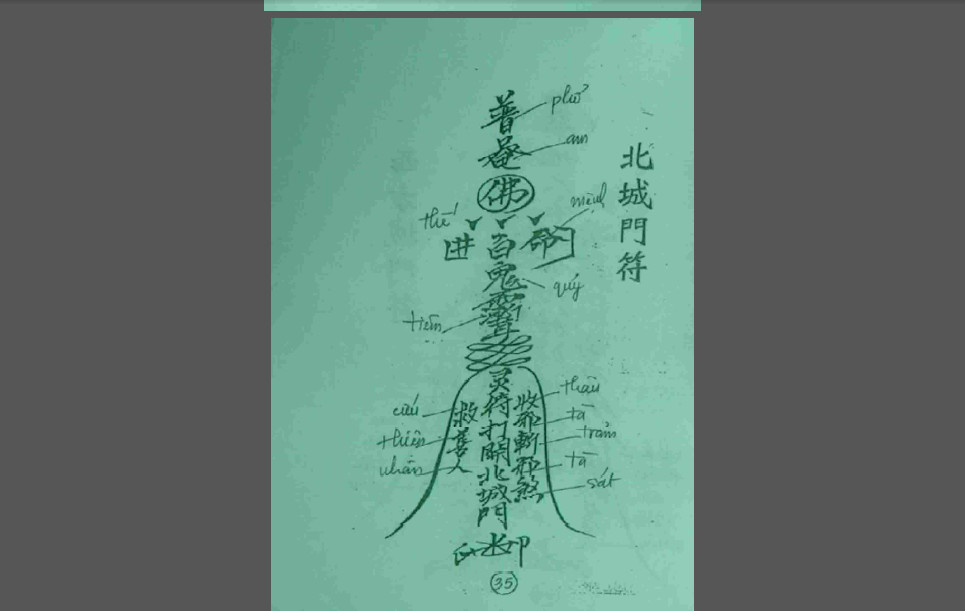 北城門符
普 phổ
菴 am
佛
thế 世 當 命 mệnh
鬼 quý
tiễn
灵符打開北城門
收邪斬邪煞
thâu
tà
trảm
tà
sát
救善人
cứu
thiện
nhân
35